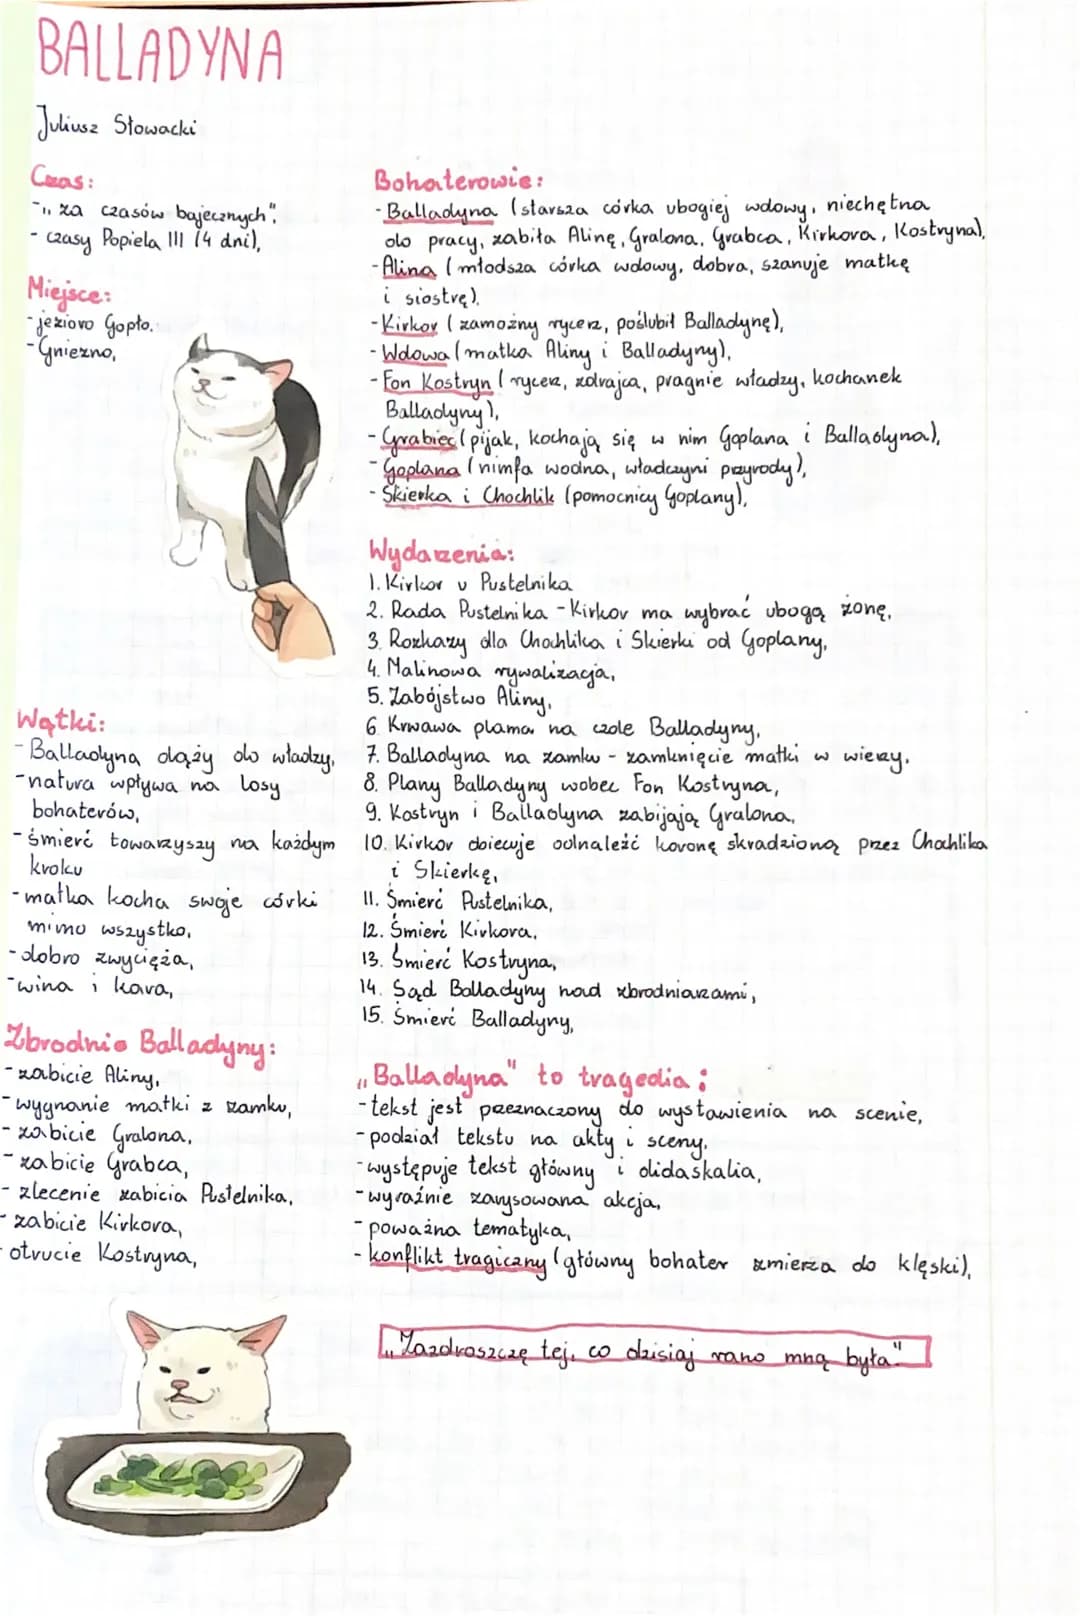 BALLADYNA
Juliusz Słowacki
Czas:
- "za czasów bajecznych",
- czasy Popiela III (4 dni),
Miejsce:
- jezioro Gopło,
- Gniezno,
Wątki:
- Balladyna dąży do władzy,
- natura wpływa na losy
bohaterów,
- śmierć towarzyszy na każdym
kroku
- matka kocha swoje córki
mimo wszystko,
- dobro zwycięża,
- wina i kara,
Zbrodnie Balladyny:
- zabicie Aliny,
- wygnanie matki z zamku,
- zabicie Gralona,
- zabicie Grabca,
- zlecenie zabicia Pustelnika,
- zabicie Kirkora,
- otrucie Kostryna,
Bohaterowie:
- Balladyna (starsza córka ubogiej wdowy, niechętna
do pracy, zabiła Alinę, Gralona, Grabca, Kirkora, Kostryna),
- Alina (młodsza córka wdowy, dobra, szanuje matkę
i siostrę),
- Kirkor (zamożny rycerz, poślubił Balladynę),
- Wdowa (matka Aliny i Balladyny),
- Fon Kostryn (rycerz, zdrajca, pragnie władzy, kochanek
Balladyny),
- Grabiec (pijak, kochają się w nim Goplana i Balladyna),
- Goplana (nimfa wodna, władczyni przyrody),
- Skierka i Chochlik (pomocnicy Goplany),
Wydarzenia:
1. Kirkor u Pustelnika
2. Rada Pustelnika - Kirkor ma wybrać ubogą żonę,
3. Rozkazy dla Chochlika i Skierki od Goplany,
4. Malinowa rywalizacja,
5. Zabójstwo Aliny,
6. Krwawa plama na czole Balladyny,
7. Balladyna na zamku - zamknięcie matki w wieży,
8. Plany Balladyny wobec Fon Kostryna,
9. Kostryn i Balladyna zabijają Gralona,
10. Kirkor obiecuje odnaleźć koronę skradzioną przez Chochlika
i Skierkę,
11. Śmierć Pustelnika,
12. Śmierć Kirkora,
13. Śmierć Kostryna,
14. Sąd Balladyny nad zbrodniarzami,
15. Śmierć Balladyny,
"Balladyna" to tragedia:
- tekst jest przeznaczony do wystawienia na scenie,
- podział tekstu na akty i sceny,
- występuje tekst główny i didaskalia,
- wyraźnie zarysowana akcja,
- poważna tematyka,
- konflikt tragiczny (główny bohater zmierza do klęski),
"Zazdroszczę tej, co dzisiaj rano mną była"